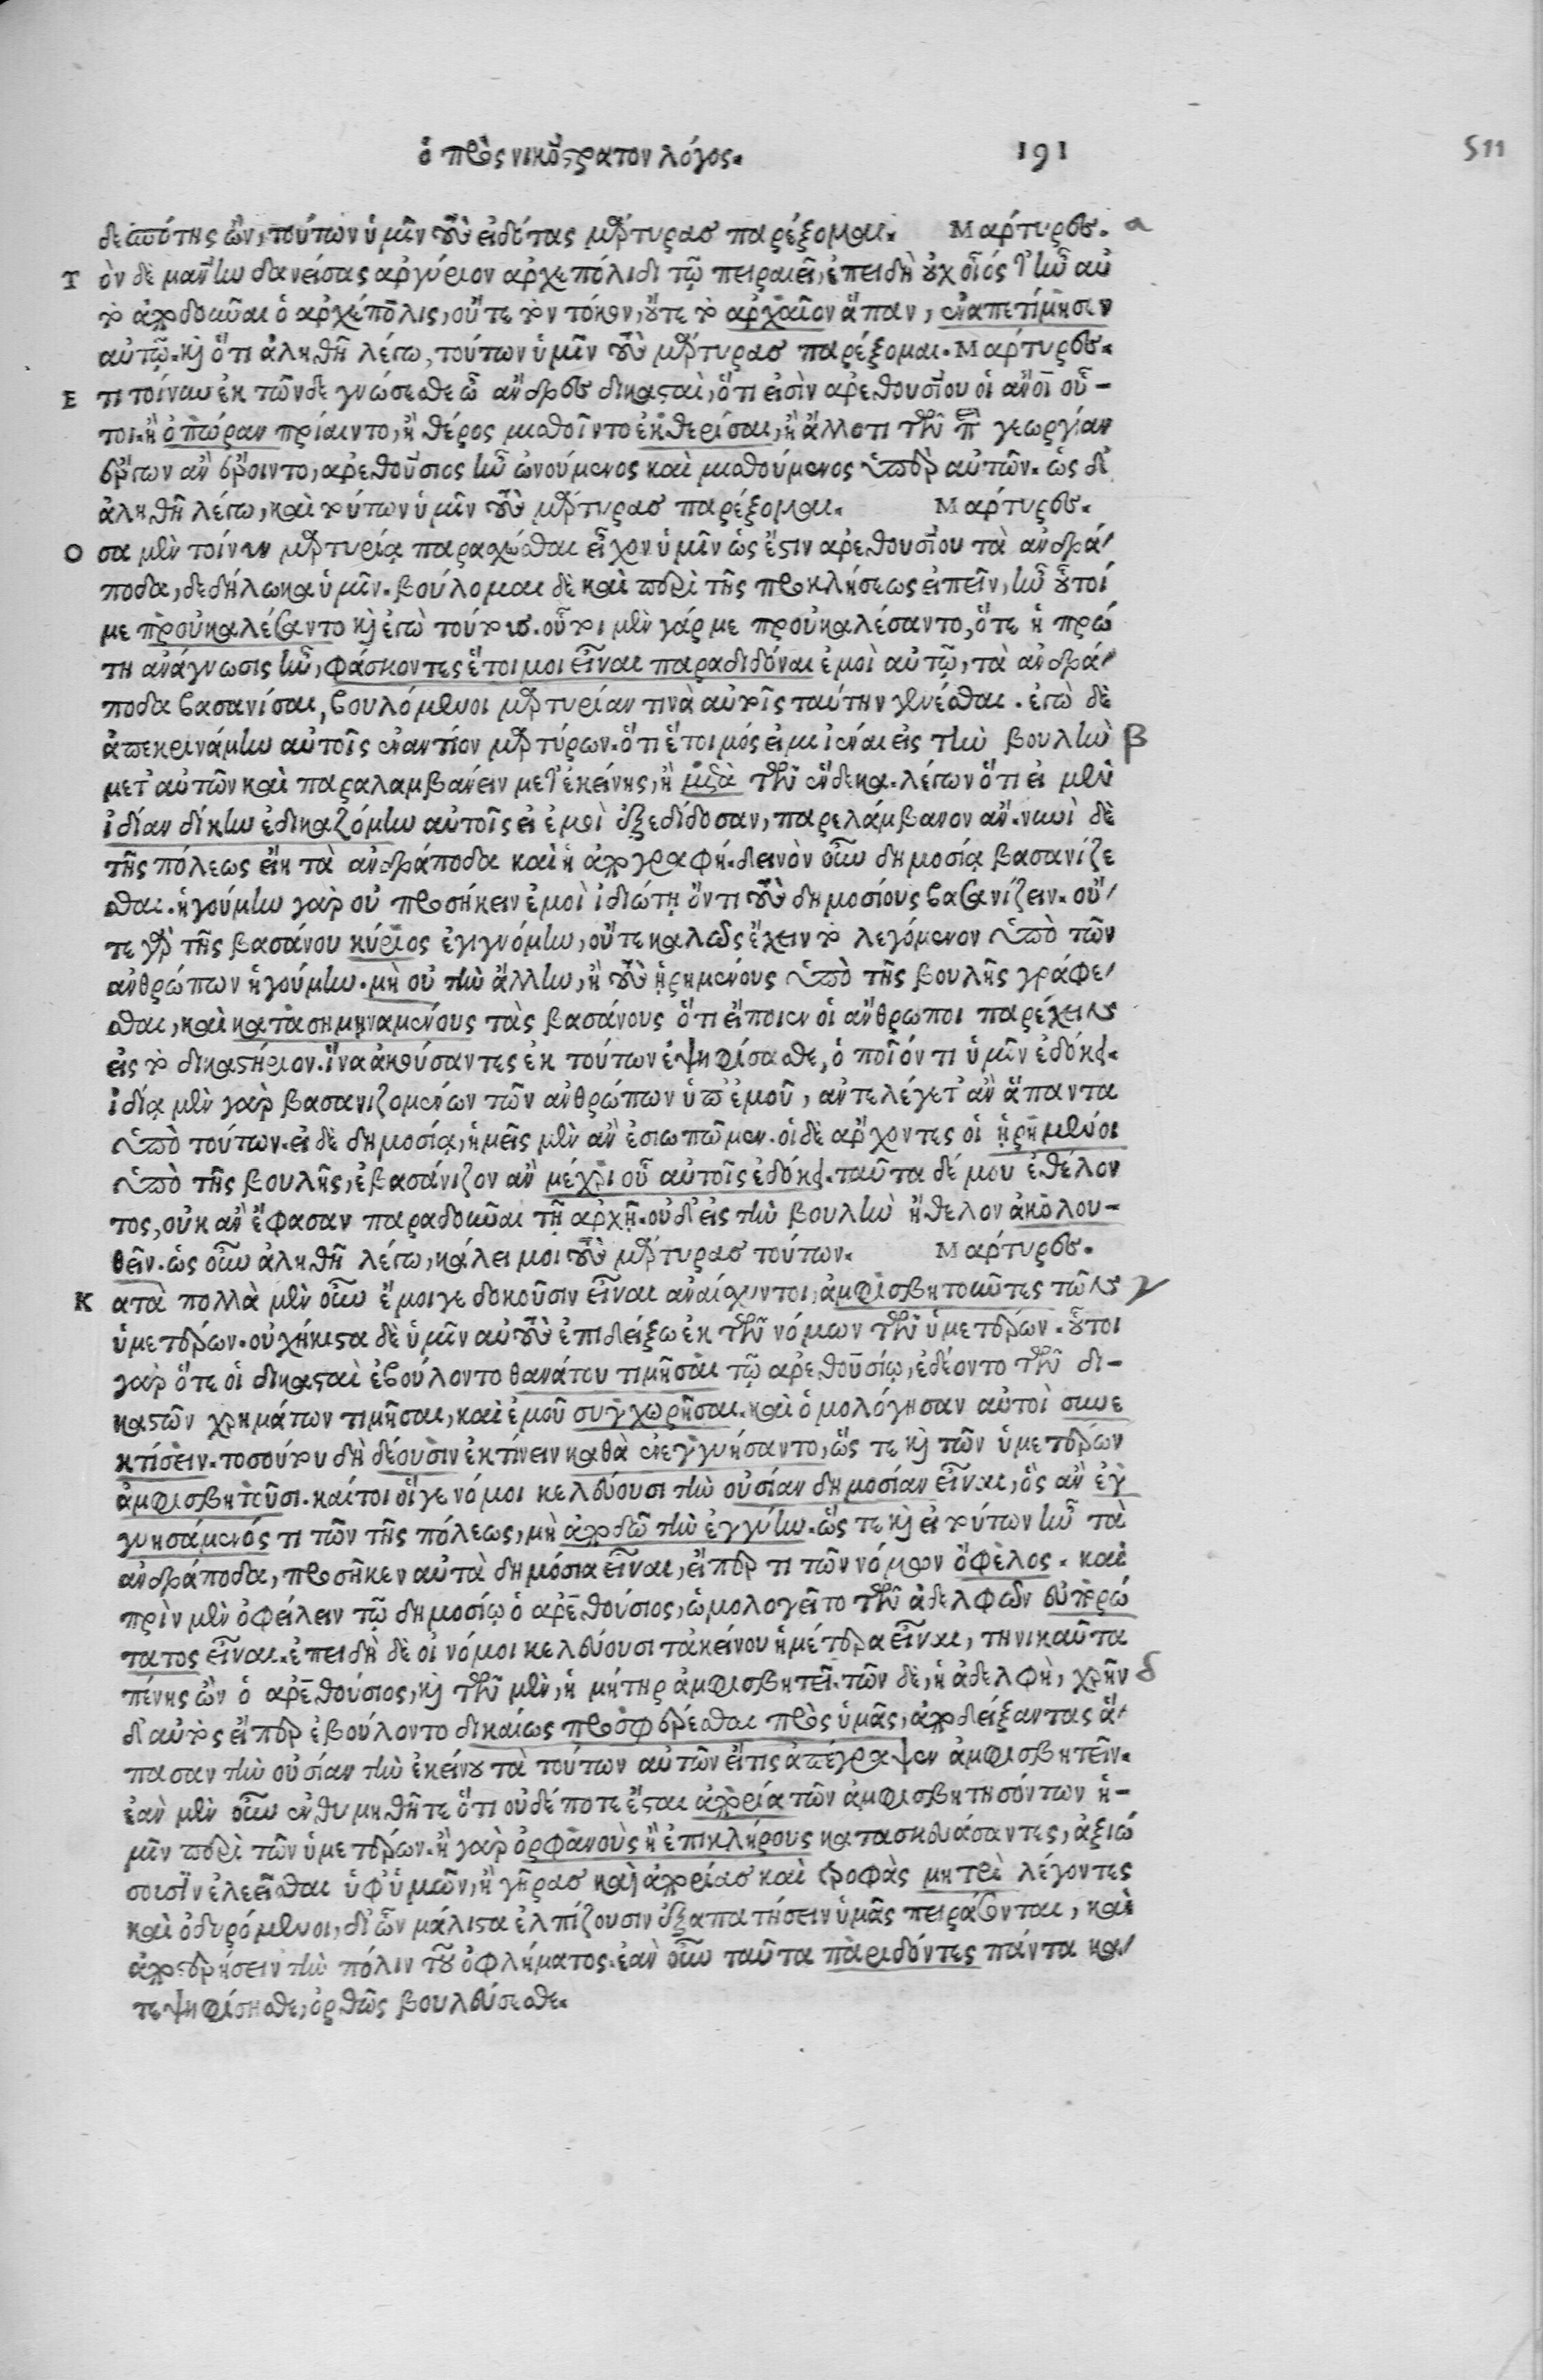 ὁ πρὸς νικόστρατον λόγος. 191 511
δεσπότης ὤν, τούτων ὑμῖν τοὺς εἰδότας μάρτυρας παρέξομαι. Μάρτυρες. α
Τ ὸν δὲ μανῆν δανείσας ἀργύριον ἀρχεπόλιδι τῷ πειραιεῖ, ἐπειδὴ οὐχ οἷός τ' ἦν αὐ
τὸ ἀποδοῦναι ὁ ἀρχέπολις, οὔτε τὸν τόκον, οὔτε τὸ ἀρχαῖον ἅπαν, ἐναπετίμησεν
αὐτῷ. καὶ ὅτι ἀληθῆ λέγω, τούτων ὑμῖν τοὺς μάρτυρας παρέξομαι. Μάρτυρες.
Ε τι τοίνυν ἐκ τῶνδε γνώσεσθε ὦ ἄνδρες δικασταὶ, ὅτι εἰσὶν ἀρεθουσίου οἱ ἄνοι οὗ-
τοι. ἢ ὀπώραν πρίαιντο, ἢ θέρος μισθοῖντο ἐκθερίσαι, ἢ ἄλλο τι τῶν περὶ γεωργίαν
ἔργων ἂν ἕροιντο, ἀρεθούσιος ἦν ὠνούμενος καὶ μισθούμενος ὑπὲρ αὐτῶν. ὡς δ'
ἀληθῆ λέγω, καὶ τούτων ὑμῖν τοὺς μάρτυρας παρέξομαι. Μάρτυρες.
Ο σα μὲν τοίνυν μαρτυρίᾳ παρασχέσθαι εἶχον ὑμῖν ὡς ἔστιν ἀρεθουσίου τὰ ἀνδρά
ποδα, δεδήλωκα ὑμῖν. βούλομαι δὲ καὶ περὶ τῆς προκλήσεως εἰπεῖν, ἣν οὗτοί
με προὐκαλέσαντο καὶ ἐγὼ τούτους. οὗτοι μὲν γάρ με προὐκαλέσαντο, ὅτε ἡ πρώ
τη ἀνάγνωσις ἦν, φάσκοντες ἕτοιμοι εἶναι παραδιδόναι ἐμοὶ αὐτῷ, τὰ ἀνδρά
ποδα βασανίσαι, βουλόμενοι μαρτυρίαν τινὰ αὑτοῖς ταύτην γενέσθαι. ἐγὼ δὲ
ἀπεκρινάμην αὐτοῖς ἐναντίον μαρτύρων. ὅτι ἕτοιμός εἰμι ἰέναι εἰς τὴν βουλὴν β
μετ' αὐτῶν καὶ παραλαμβάνειν μετ' ἐκείνης, ἢ μετὰ τῶν ἕνδεκα. λέγων ὅτι εἰ μὲν
ἰδίαν δίκην ἐδικαζόμην αὐτοῖς εἰ ἐμοὶ ἐξεδίδοσαν, παρελάμβανον ἄν. νυνὶ δὲ
τῆς πόλεως εἴη τὰ ἀνδράποδα καὶ ἡ ἀπογραφή. δεινὸν οὖν δημοσίᾳ βασανίζε
σθαι. ἡγούμην γὰρ οὐ προσήκειν ἐμοὶ ἰδιώτῃ ὄντι τοὺς δημοσίους βασανίζειν. οὔ
τε γὰρ τῆς βασάνου κύριος ἐγιγνόμην, οὔτε καλῶς ἔχειν τὸ λεγόμενον ὑπὸ τῶν
ἀνθρώπων ἡγούμην. μὴ οὐ τὴν ἄλλην, ἢ τοὺς ᾑρημένους ὑπὸ τῆς βουλῆς γράφε
σθαι, καὶ κατασημηναμένους τὰς βασάνους ὅτι εἴποιεν οἱ ἄνθρωποι παρέχειν
εἰς τὸ δικαστήριον. ἵνα ἀκούσαντες ἐκ τούτων ἐψηφίσασθε, ὁ ποῖόν τι ὑμῖν ἐδόκει.
ἰδίᾳ μὲν γὰρ βασανιζομένων τῶν ἀνθρώπων ὑπ' ἐμοῦ, ἀντελέγετ' ἂν ἅπαντα
ὑπὸ τούτων. εἰ δὲ δημοσίᾳ, ἡμεῖς μὲν ἂν ἐσιωπῶμεν. οἱ δὲ ἄρχοντες οἱ ᾑρημένοι
ὑπὸ τῆς βουλῆς, ἐβασάνιζον ἂν μέχρι οὗ αὐτοῖς ἐδόκει. ταῦτα δέ μου ἐθέλον
τος, οὐκ ἂν ἔφασαν παραδοῦναι τῇ ἀρχῇ. οὐδ' εἰς τὴν βουλὴν ἤθελον ἀκολου-
θεῖν. ὡς οὖν ἀληθῆ λέγω, κάλει μοι τοὺς μάρτυρας τούτων. Μάρτυρες.
Κ ατὰ πολλὰ μὲν οὖν ἔμοιγε δοκοῦσιν εἶναι ἀναίσχυντοι, ἀμφισβητοῦντες τῶν γ
ὑμετέρων. οὐχ ἥκιστα δὲ ὑμῖν αὐτοὺς ἐπιδείξω ἐκ τῶν νόμων τῶν ὑμετέρων. οὗτοι
γὰρ ὅτε οἱ δικασταὶ ἐβούλοντο θανάτου τιμῆσαι τῷ ἀρεθουσίῳ, ἐδέοντο τῶν δι-
καστῶν χρημάτων τιμῆσαι, καὶ ἐμοῦ συγχωρῆσαι. καὶ ὁμολόγησαν αὐτοὶ συνε
κτίσειν. τοσούτου δὴ δέουσιν ἐκτίνειν καθὰ ἐνεγγυήσαντο, ὥς τε καὶ τῶν ὑμετέρων
ἀμφισβητοῦσι. καίτοι οἵ γε νόμοι κελεύουσι τὴν οὐσίαν δημοσίαν εἶναι, ὃς ἂν ἐγ
γυησάμενός τι τῶν τῆς πόλεως, μὴ ἀποδῷ τὴν ἐγγύην. ὥς τε καὶ εἰ τούτων ἦν τὰ
ἀνδράποδα, προσῆκεν αὐτὰ δημόσια εἶναι, εἴπερ τι τῶν νόμων ὄφελος. καὶ
πρὶν μὲν ὀφείλειν τῷ δημοσίῳ ὁ ἀρεθούσιος, ὡμολογεῖτο τῶν ἀδελφῶν εὐπορώ
τατος εἶναι. ἐπειδὴ δὲ οἱ νόμοι κελεύουσι τἀκείνου ἡμέτερα εἶναι, τηνικαῦτα
πένης ὢν ὁ ἀρεθούσιος, καὶ τῶν μὲν, ἡ μήτηρ ἀμφισβητεῖ. τῶν δὲ, ἡ ἀδελφὴ, χρῆν δ
δ' αὐτοὺς εἴπερ ἐβούλοντο δικαίως προσφέρεσθαι πρὸς ὑμᾶς, ἀποδείξαντας ἅ
πασαν τὴν οὐσίαν τὴν ἐκείνου τὰ τούτων αὐτῶν εἴτις ἀπέγραψεν ἀμφισβητεῖν.
ἐὰν μὲν οὖν ἐνθυμηθῆτε ὅτι οὐδέποτε ἔσται ἀπορία τῶν ἀμφισβητησόντων ἡ-
μῖν περὶ τῶν ὑμετέρων. ἢ γὰρ ὀρφανοὺς ἢ ἐπικλήρους κατασκευάσαντες, ἀξιώ
σουσιν ἐλεεῖσθαι ὑφ' ὑμῶν, ἢ γῆρας καὶ ἀπορίας καὶ τροφὰς μητρὶ λέγοντες
καὶ ὀδυρόμενοι, δι' ὧν μάλιστα ἐλπίζουσιν ἐξαπατήσειν ὑμᾶς πειράσονται, καὶ
ἀποστερήσειν τὴν πόλιν τοῦ ὀφλήματος. ἐὰν οὖν ταῦτα παριδόντες πάντα κα
τεψηφίσησθε, ὀρθῶς βουλεύσεσθε.